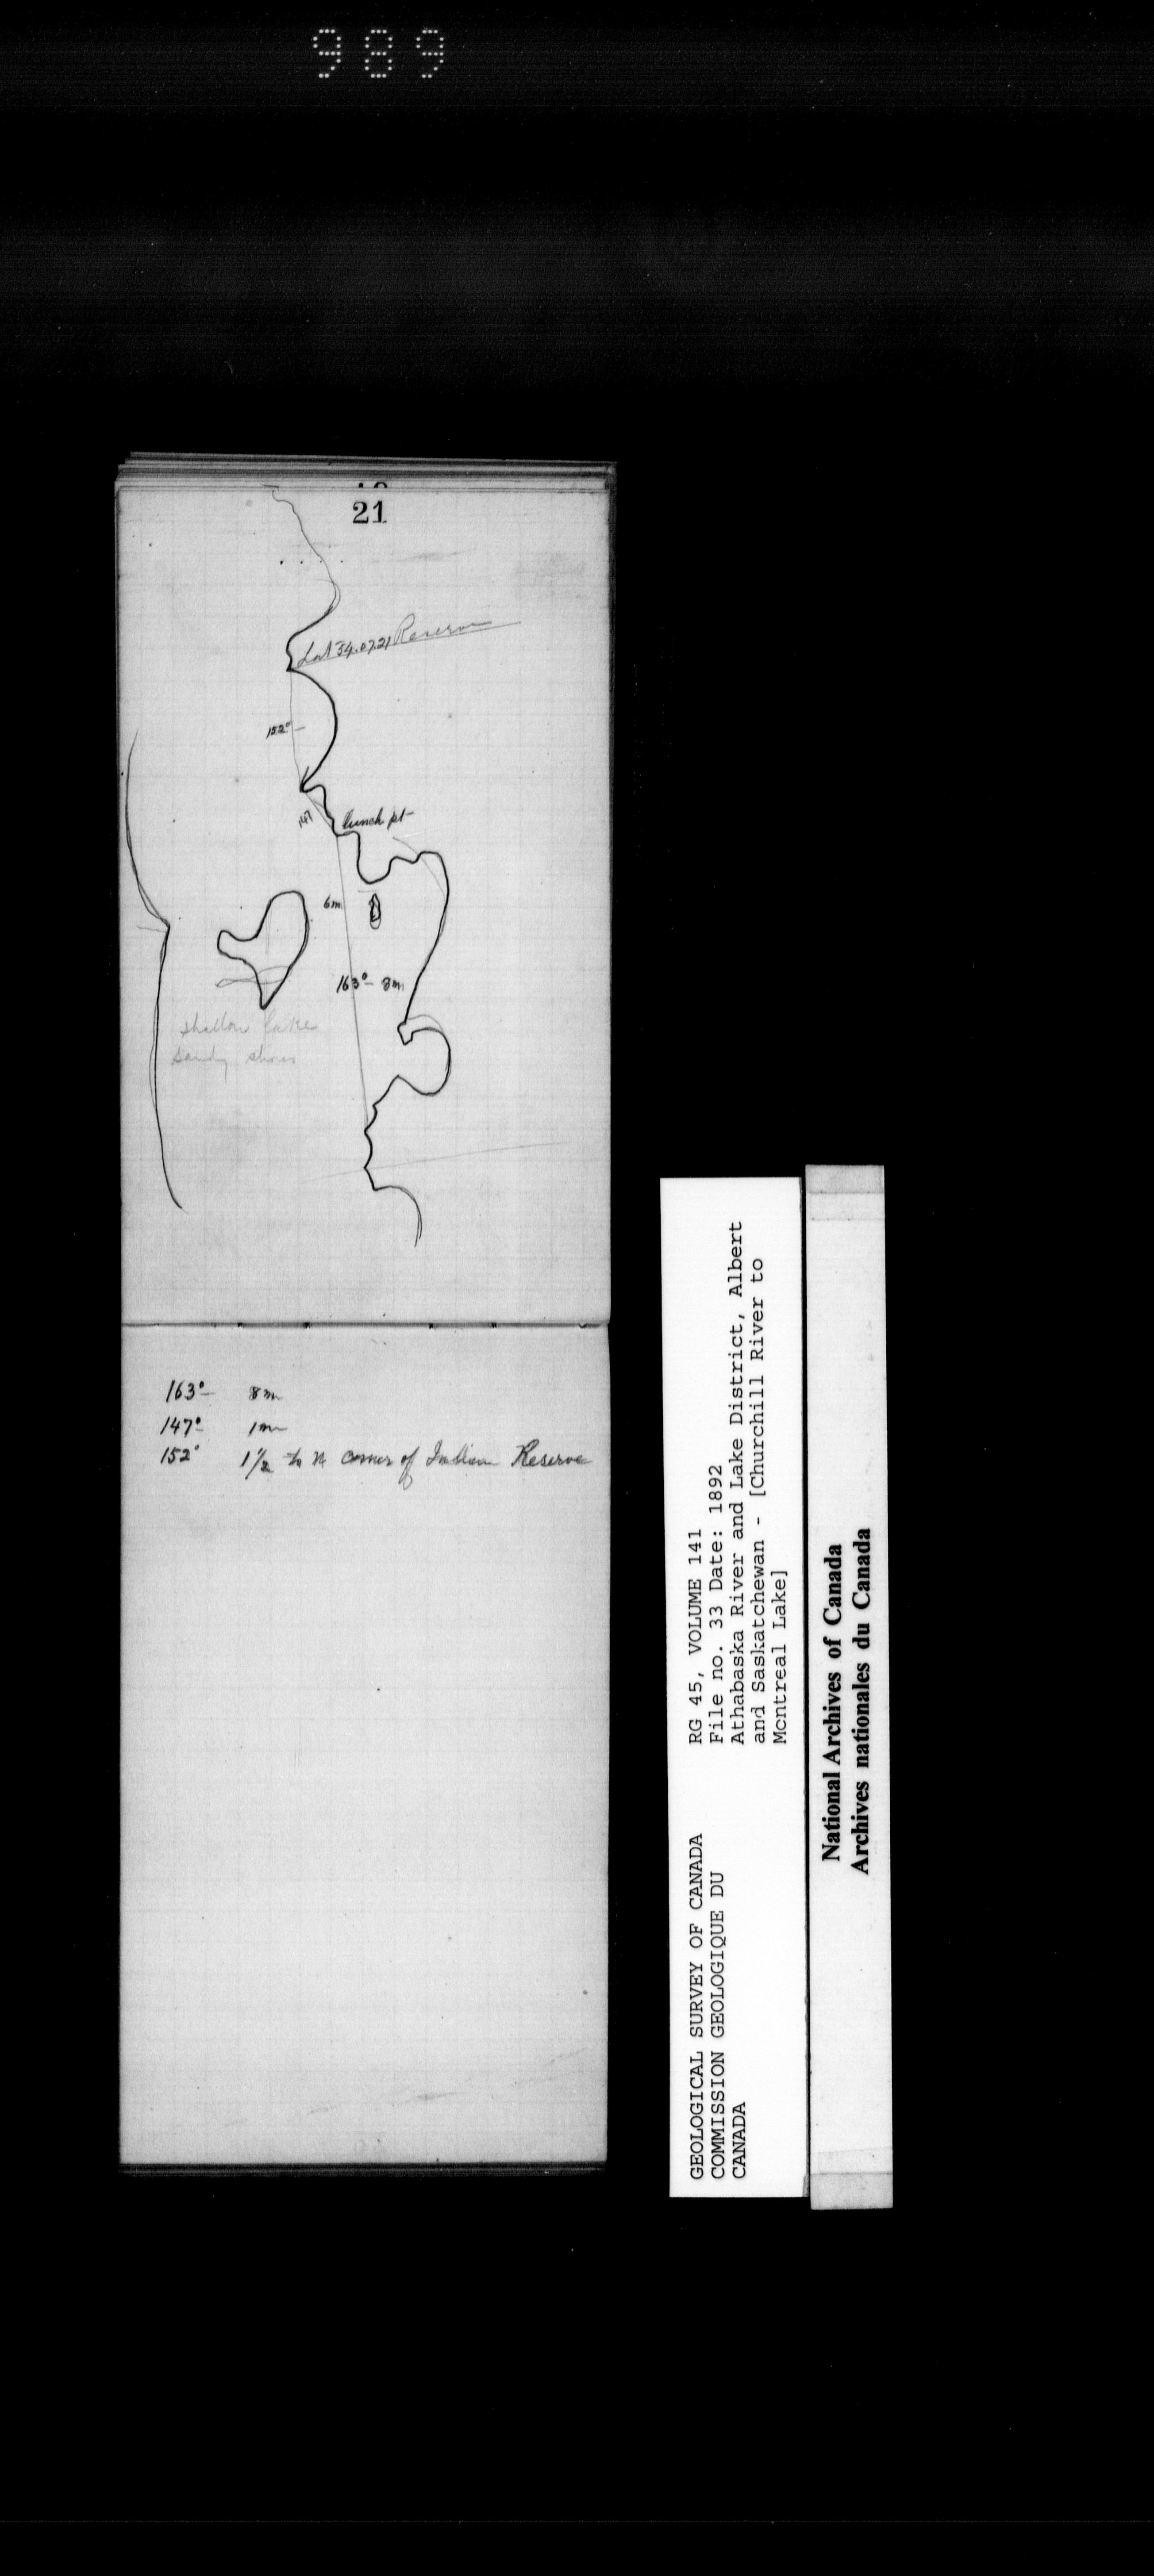 989
21
Lat 54.07.21 Reserve
152°
147
lunch pt
6m
163° 8m
shallow lake
sandy shores
163° 8m
147° 1m
152° 1 1/2 to N corner of Indian Reserve
GEOLOGICAL SURVEY OF CANADA
COMMISSION GEOLOGIQUE DU
CANADA
RG 45, VOLUME 141
File no. 33 Date: 1892
Athabaska River and Lake District, Albert
and Saskatchewan - [Churchill River to
Montreal Lake]
National Archives of Canada
Archives nationales du Canada